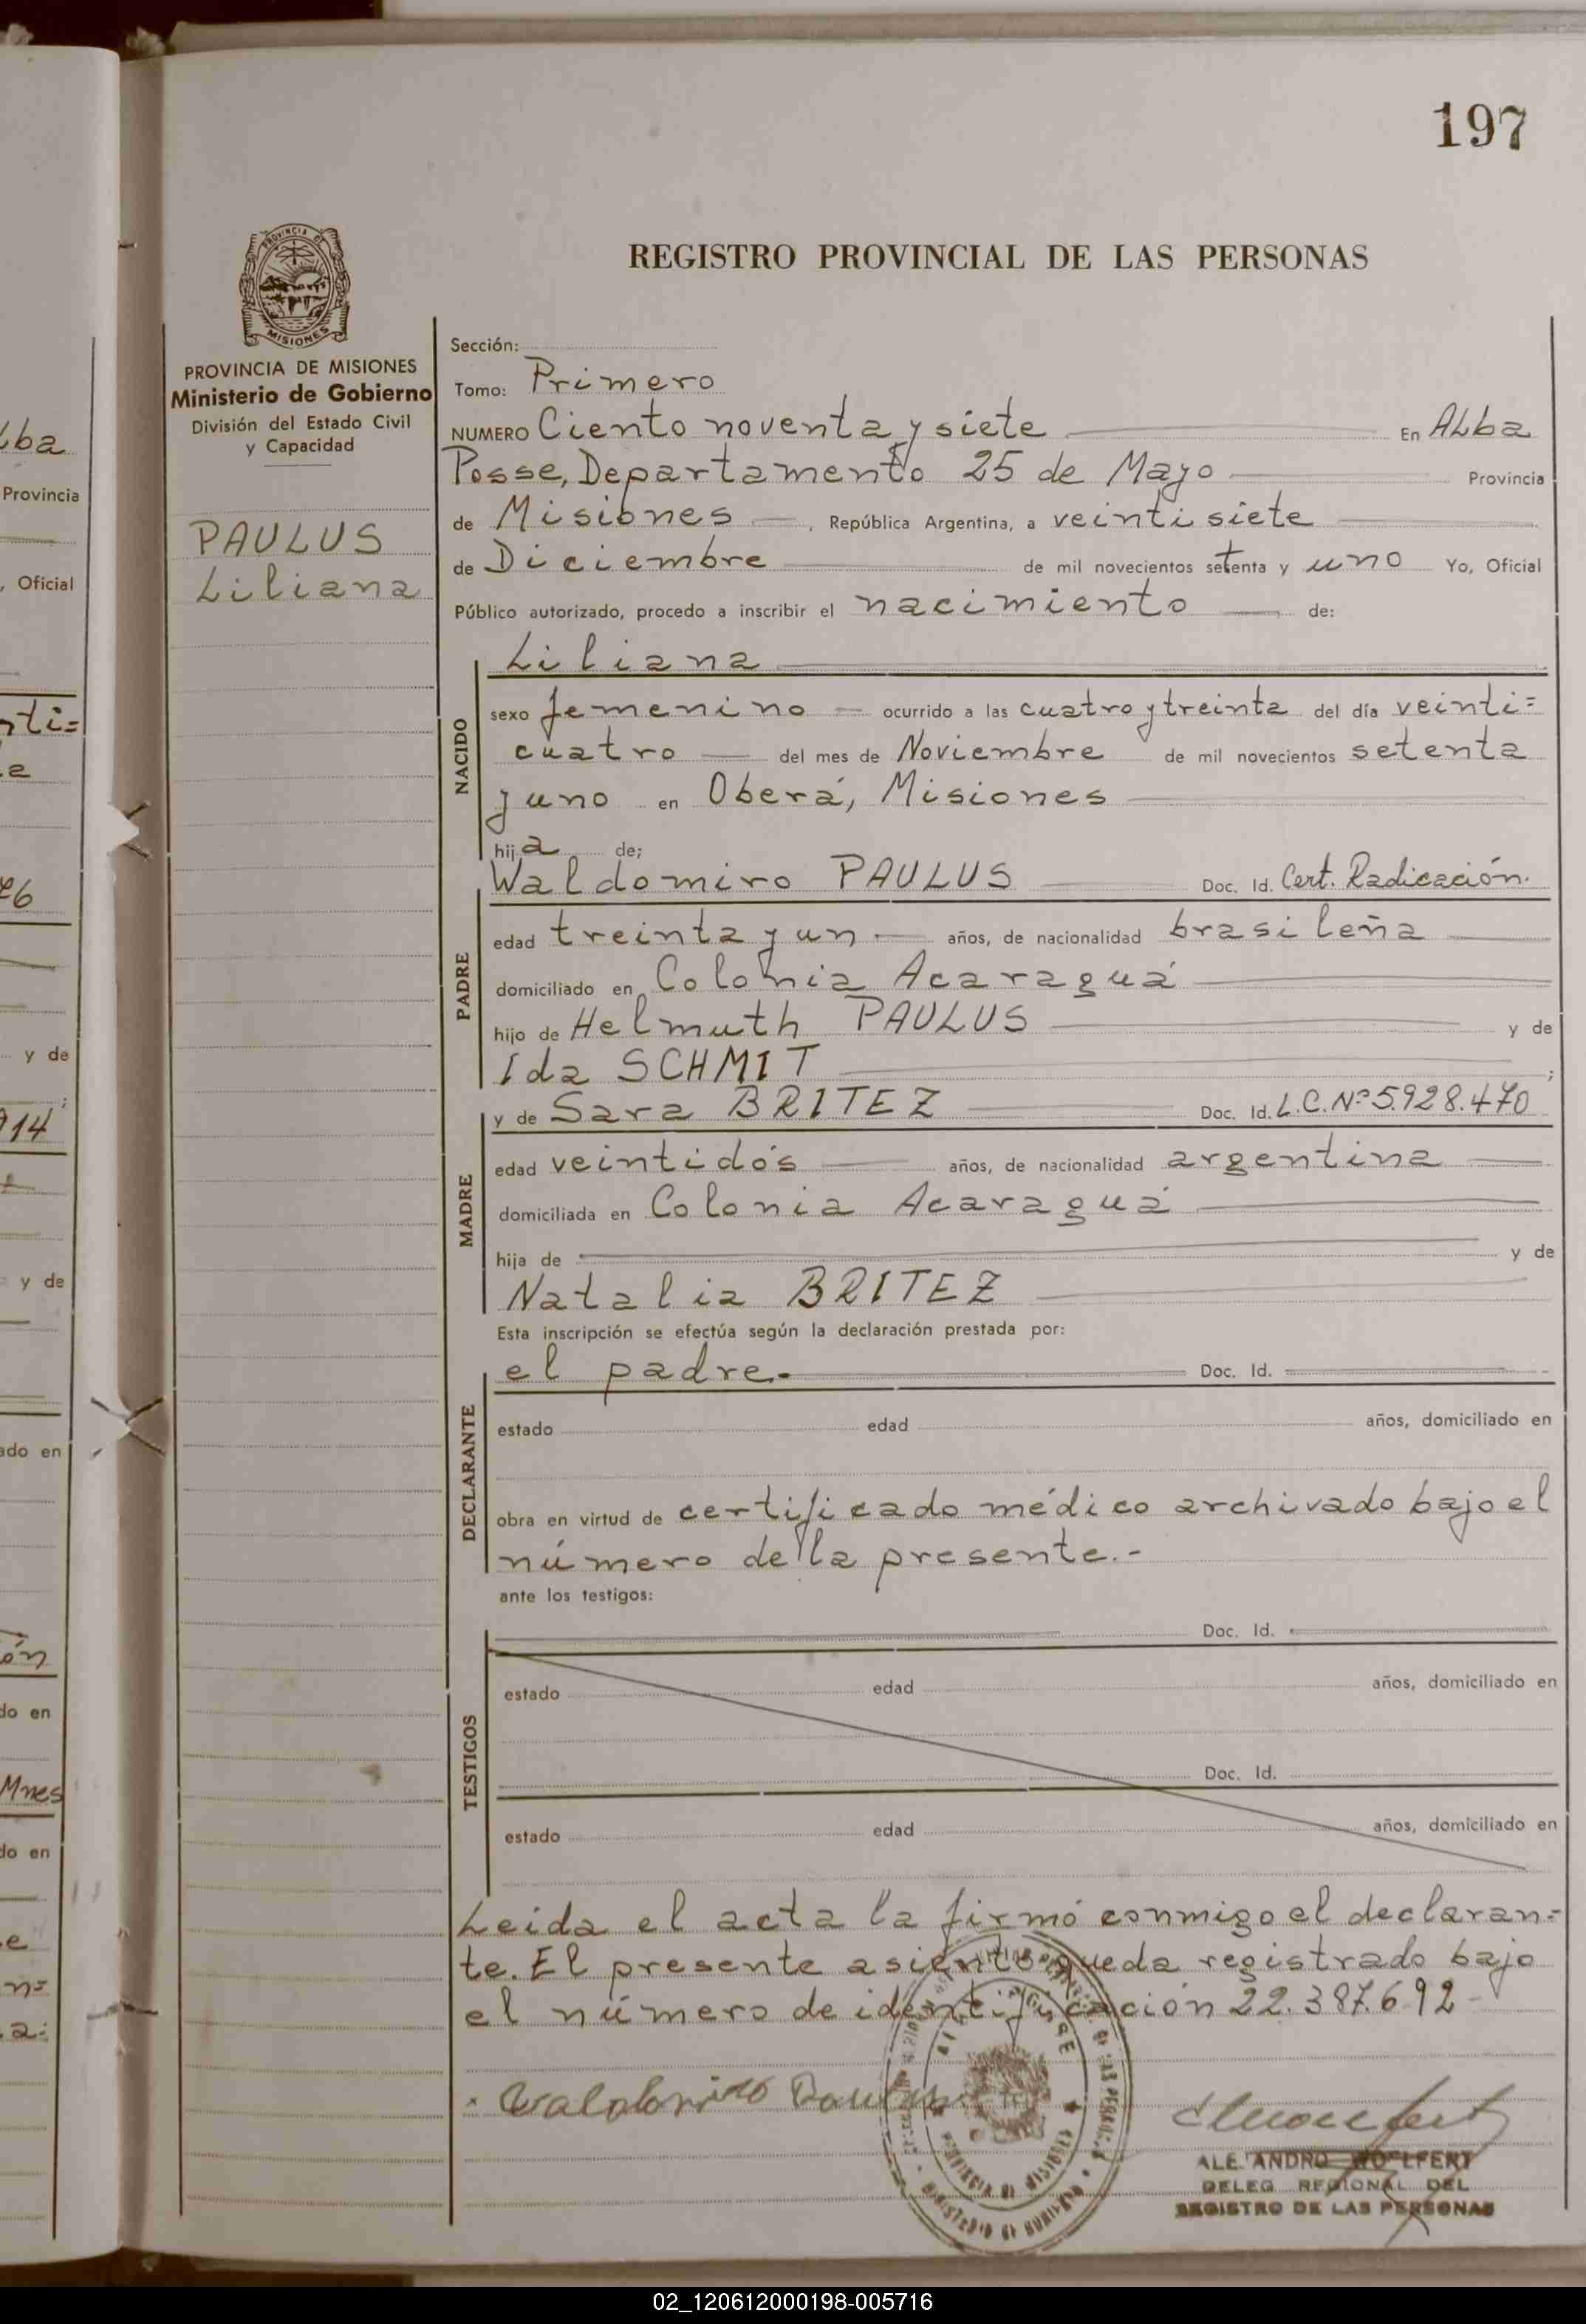 197
PROVINCIA DE
MISIONES
PROVINCIA DE MISIONES
Ministerio de Gobierno
División del Estado Civil
y Capacidad
PAULUS
Liliana
REGISTRO PROVINCIAL DE LAS PERSONAS
Sección:
Tomo: Primero
NUMERO Ciento noventa y siete En Alba
Posse, Departamento 25 de Mayo Provincia
de Misiones, República Argentina, a veintisiete
de Diciembre de mil novecientos setenta y uno Yo, Oficial
Público autorizado, procedo a inscribir el nacimiento de:
NACIDO
Liliana
sexo femenino ocurrido a las cuatro y treinta del día veinti=
cuatro del mes de Noviembre de mil novecientos setenta
y uno en Oberá, Misiones
hija de;
PADRE
Waldomiro PAULUS Doc. Id. Cert. Radicación.
edad treinta y un años, de nacionalidad brasileña
domiciliado en Colonia Acaraguá
hijo de Helmuth PAULUS y de
Ida SCHMIT ;
MADRE
y de Sara BRITEZ Doc. Id. L.C. Nº 5.928.470
edad veintidós años, de nacionalidad argentina
domiciliada en Colonia Acaraguá
hija de y de
Natalia BRITEZ
Esta inscripción se efectúa según la declaración prestada por:
DECLARANTE
el padre.- Doc. Id.
estado edad años, domiciliado en
obra en virtud de certificado médico archivado bajo el
número de la presente.-
ante los testigos:
TESTIGOS
Doc. Id.
estado edad años, domiciliado en
Doc. Id.
estado edad años, domiciliado en
Leída el acta la firmó conmigo el declaran=
te. El presente asiento queda registrado bajo
el número de identificación 22.387.692-
PROVINCIA DE MISIONES
ALEJANDRO WOLFERT
DELEG REGIONAL DEL
REGISTRO DE LAS PERSONAS
lba
Provincia
, Oficial
nti=
y de
914
y de
ado en
ón
do en
Mnes
do en
n=
02_120612000198-005716